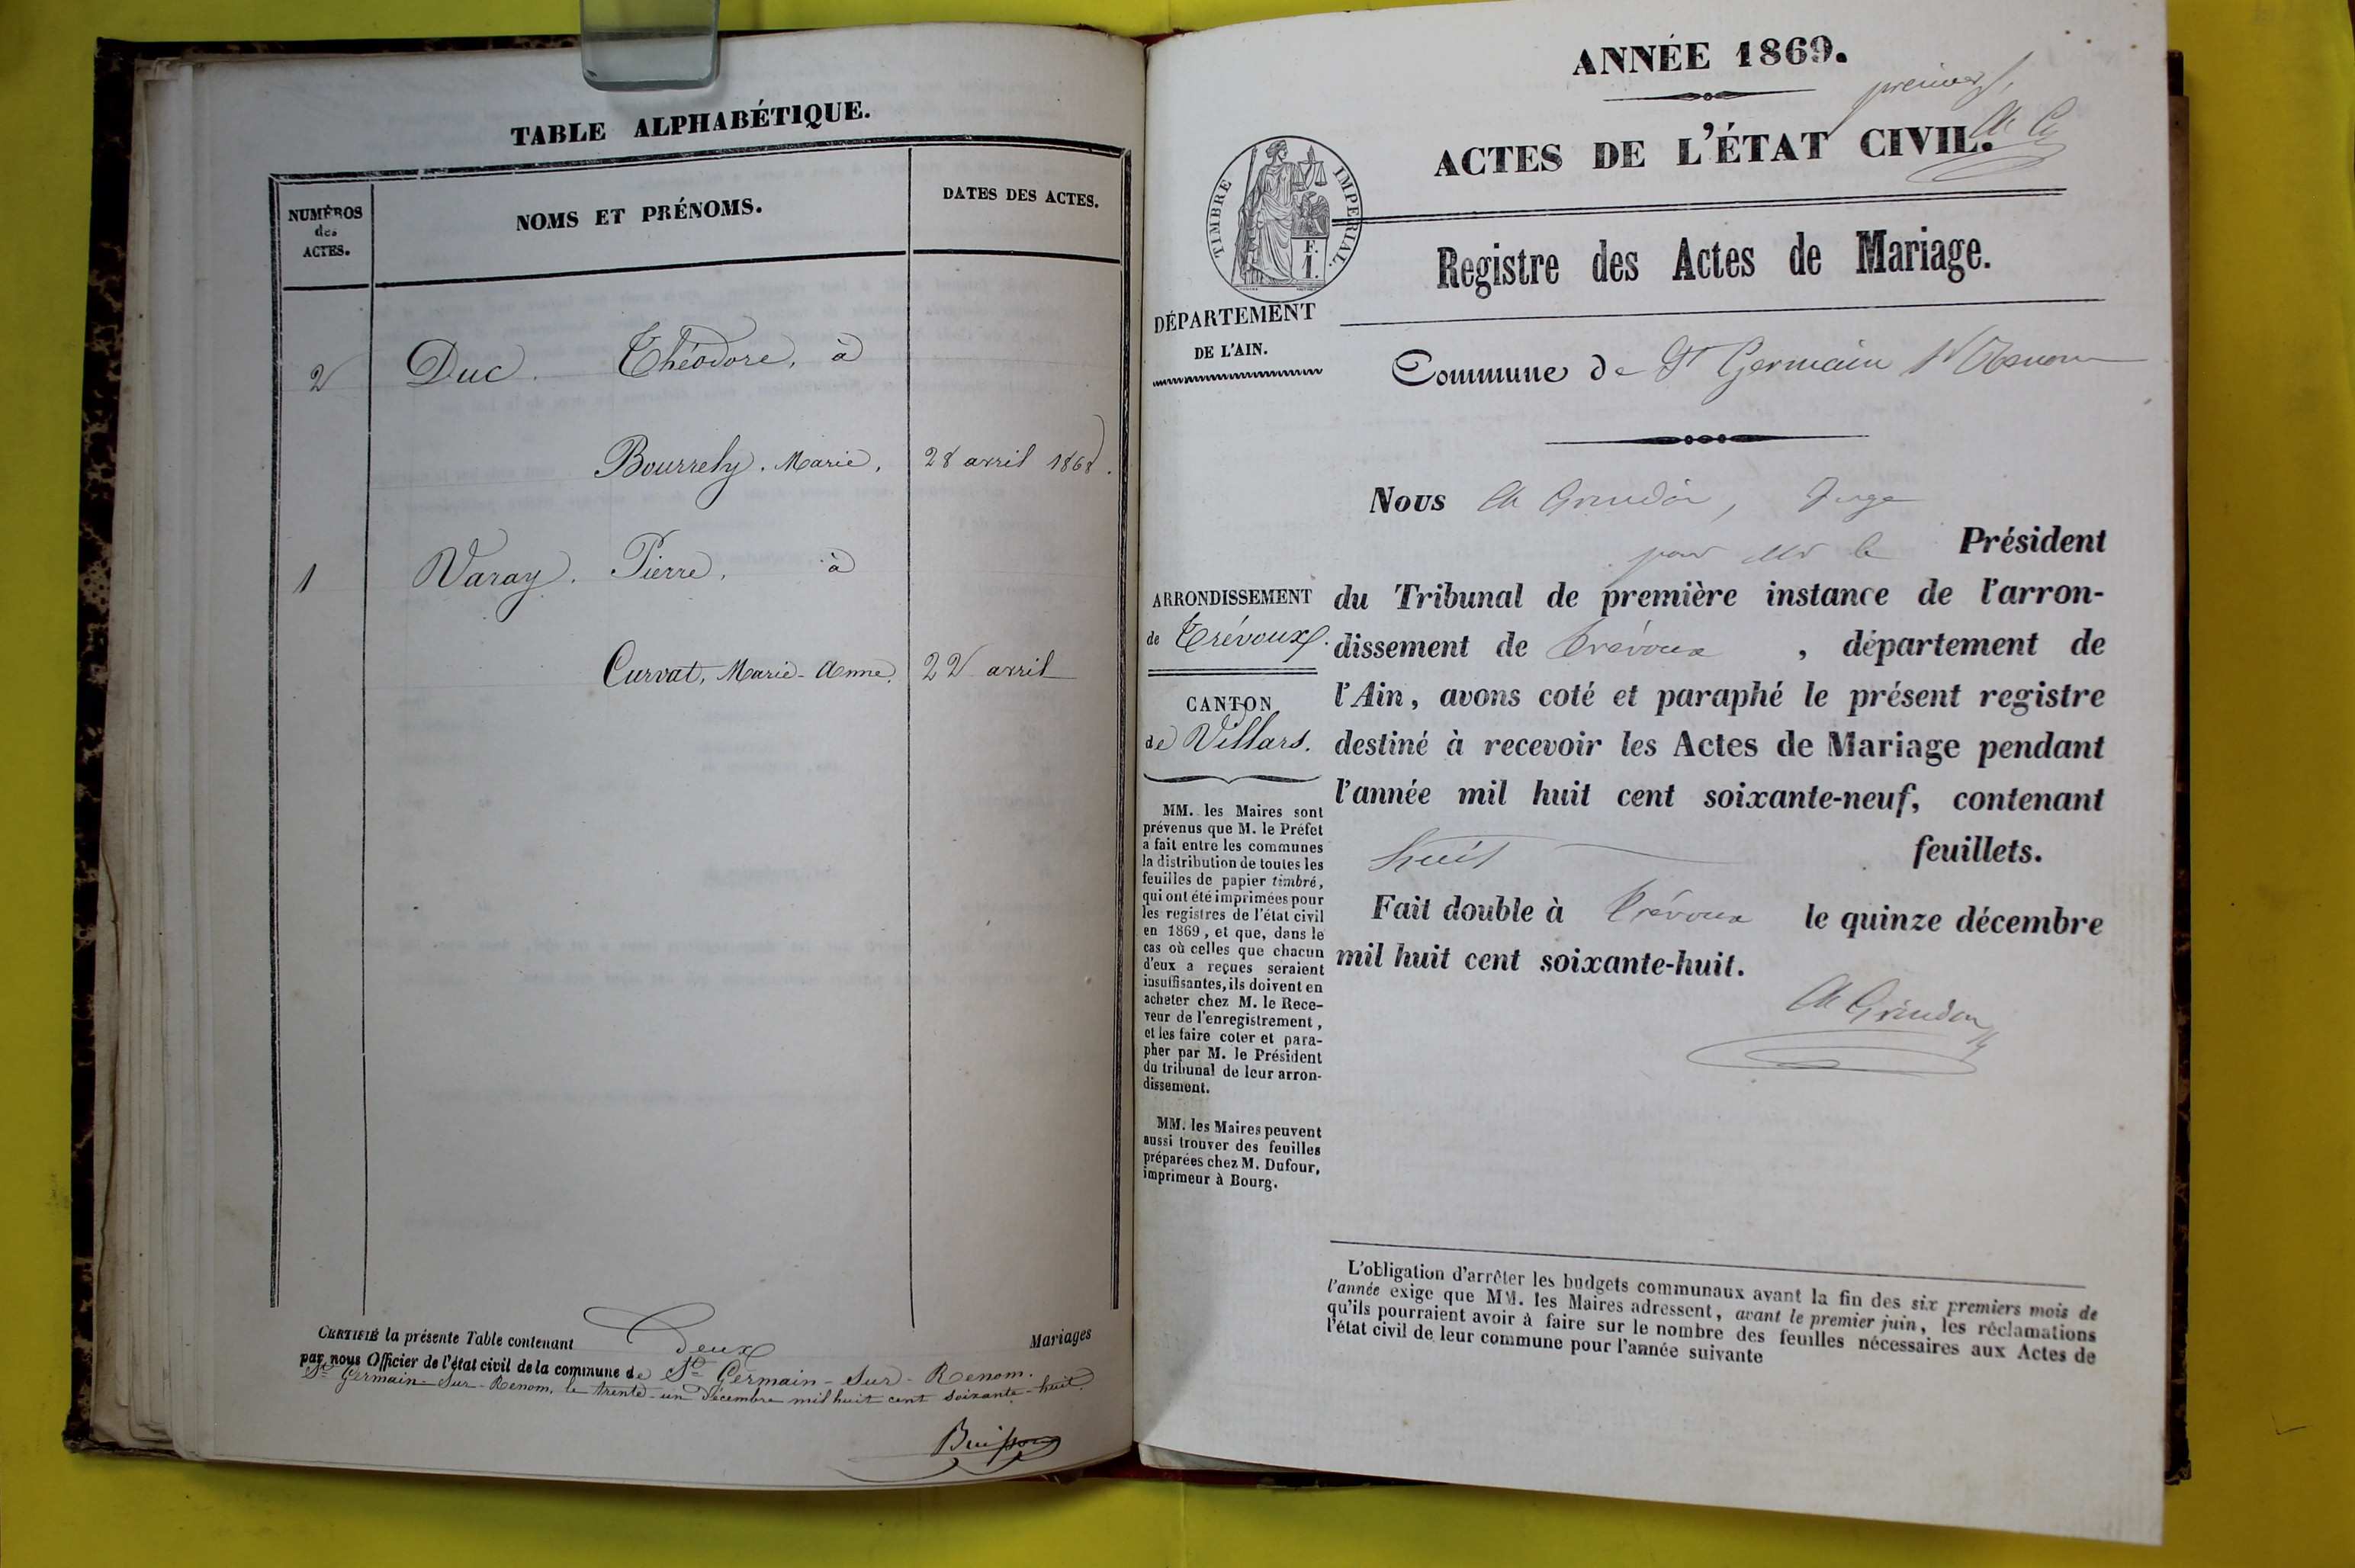 TABLE ALPHABÉTIQUE.
NUMÉROS
des
ACTES.
NOMS ET PRÉNOMS.
DATES DES ACTES.
2 Duc. Théodore, à
Bourrely. Marie, 28 avril 1868.
1 Varay. Pierre, à
Curvat, Marie-Anne. 22 avril
CERTIFIÉ la présente Table contenant deux Mariages
par nous Officier de l'état civil de la commune de St Germain-sur-Renom.
St Germain-sur-Renom, le trente-un décembre mil huit cent soixante-huit.
Buisson
ANNÉE 1869.
premier f.
ACTES DE L'ÉTAT CIVIL.
Ch G
TIMBRE IMPERIAL.
1 F.
Registre des Actes de Mariage.
DÉPARTEMENT
DE L'AIN.
Commune de St Germain s/ Renom
Nous Ch Grindon, Juge
pour Mr le Président
ARRONDISSEMENT
de Trévoux.
CANTON
de Villars.
du Tribunal de première instance de l'arron-
dissement de Trévoux, département de
l'Ain, avons coté et paraphé le présent registre
destiné à recevoir les Actes de Mariage pendant
l'année mil huit cent soixante-neuf, contenant
huit feuillets.
Fait double à Trévoux le quinze décembre
mil huit cent soixante-huit.
Ch Grindon
MM. les Maires sont
prévenus que M. le Préfet
a fait entre les communes
la distribution de toutes les
feuilles de papier timbré,
qui ont été imprimées pour
les registres de l'état civil
en 1869, et que, dans le
cas où celles que chacun
d'eux a reçues seraient
insuffisantes, ils doivent en
acheter chez M. le Rece-
veur de l'enregistrement,
et les faire coter et para-
pher par M. le Président
du tribunal de leur arron-
dissement.
MM. les Maires peuvent
aussi trouver des feuilles
préparées chez M. Dufour,
imprimeur à Bourg.
L'obligation d'arrêter les budgets communaux avant la fin des six premiers mois de
l'année exige que MM. les Maires adressent, avant le premier juin, les réclamations
qu'ils pourraient avoir à faire sur le nombre des feuilles nécessaires aux Actes de
l'état civil de leur commune pour l'année suivante